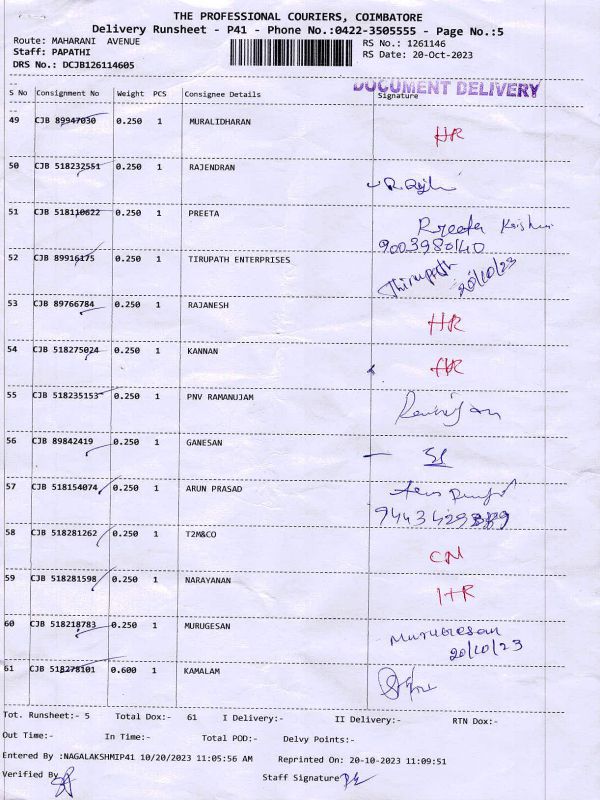 THE PROFESSIONAL COURIERS, COIMBATORE
Delivery Runsheet - P41 - Phone No.:0422-3505555 - Page No.:5
Route: MAHARANI AVENUE RS No.: 1261146
Staff: PAPATHI RS Date: 20-Oct-2023
DRS No.: DCJB126114605
DOCUMENT DELIVERY
S No Consignment No Weight PCS Consignee Details Signature
49 CJB 89947030 0.250 1 MURALIDHARAN HR
50 CJB 518232551 0.250 1 RAJENDRAN
51 CJB 518110622 0.250 1 PREETA Preeta
9003980140
52 CJB 89916175 0.250 1 TIRUPATH ENTERPRISES Thirupath 20/10/23
53 CJB 89766784 0.250 1 RAJANESH HR
54 CJB 518275024 0.250 1 KANNAN HR
55 CJB 518235153 0.250 1 PNV RAMANUJAM
56 CJB 89842419 0.250 1 GANESAN
57 CJB 518154074 0.250 1 ARUN PRASAD
58 CJB 518281262 0.250 1 T2M&CO CN
59 CJB 518281598 0.250 1 NARAYANAN HR
60 CJB 518218783 0.250 1 MURUGESAN Murugesan
20/10/23
61 CJB 518278101 0.600 1 KAMALAM
Tot. Runsheet:- 5 Total Dox:- 61 I Delivery:- II Delivery:- RTN Dox:-
Out Time:- In Time:- Total POD:- Delvy Points:-
Entered By :NAGALAKSHMIP41 10/20/2023 11:05:56 AM Reprinted On: 20-10-2023 11:09:51
Verified By Staff Signature